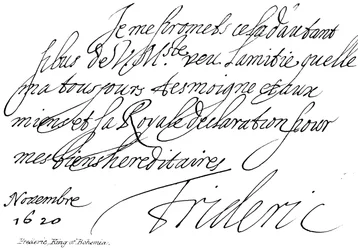 Je me promets cela d'autant
plus de V. M.ste veu l'amitie quelle
m'a tousjours tesmoigne et aux
miens et sa Royale declaration pour
mes biens hereditaires
Frideric
Novembre
1620
Frederic, King of Bohemia.